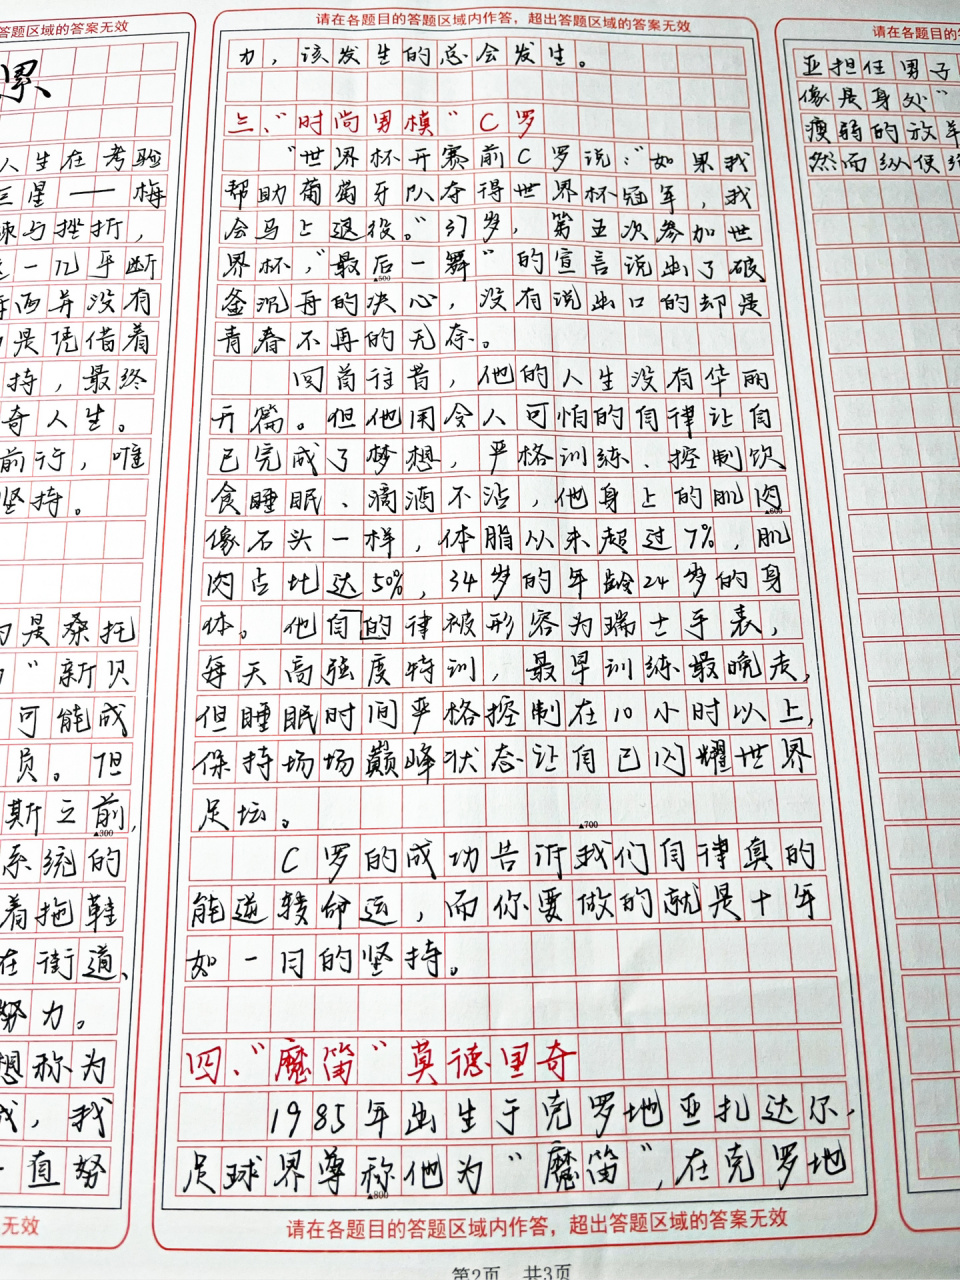 答题区域的答案无效
累
人生在考验
三星——梅
练与挫折，
一几乎断
而并没有
是凭借着
持，最终
奇人生。
前行，唯
坚持。
是桑托
"新贝
可能成
员。但
斯之前，
▲300
系统的
着拖鞋
在街道、
努力。
想称为
我，我
直努
无效
请在各题目的答题区域内作答，超出答题区域的答案无效
力，该发生的总会发生。
三、"时尚男模"C罗
"世界杯开赛前C罗说："如果我
帮助葡萄牙队夺得世界杯冠军，我
会马上退役。"37岁，第五次参加世
界杯，"最后一舞"的宣言说出了破
▲500
釜沉舟的决心，没有说出口的却是
青春不再的无奈。
回首往昔，他的人生没有华丽
开篇。但他用令人可怕的自律让自
己完成了梦想，严格训练、控制饮
食睡眠、滴酒不沾，他身上的肌肉
▲600
像石头一样，体脂以未超过7%，肌
肉占比达50%，34岁的年龄24岁的身
体。他自的律被形容为瑞士手表，
每天高强度特训，最早训练最晚走，
但睡眠时间严格控制在10小时以上，
保持场场巅峰状态让自己闪耀世界
足坛。
▲700
C罗的成功告诉我们自律真的
能逆转命运，而你要做的就是十年
如一日的坚持。
四、"魔笛"莫德里奇
1985年出生于克罗地亚扎达尔，
足球界尊称他为"魔笛"，在克罗地
▲800
请在各题目的答题区域内作答，超出答题区域的答案无效
第2页 共3页
请在各题目的
亚担任男子
像是身处"
瘦弱的放羊
然而纵使